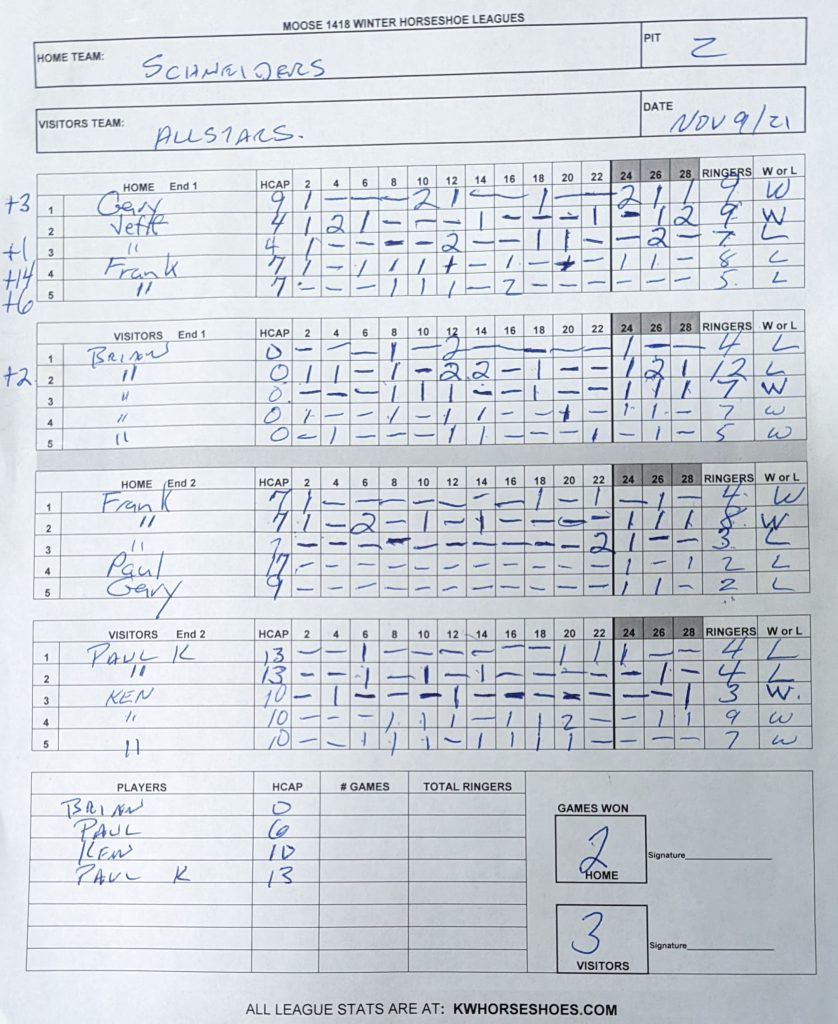 MOOSE 1418 WINTER HORSESHOE LEAGUES
HOME TEAM: SCHNEIDERS PIT 2
VISITORS TEAM: ALLSTARS. DATE NOV 9/21
HOME End 1 HCAP 2 4 6 8 10 12 14 16 18 20 22 24 26 28 RINGERS W or L
+3 1 Gary 9 1 – – – 2 1 – – 1 – – 2 1 1 9 W
2 Jeff 4 1 2 1 – – – 1 – – – 1 – 1 2 9 W
+1 3 " 4 1 – – – – 2 – – 1 1 – – 2 – 7 L
+14 4 Frank 7 1 – 1 1 1 + – 1 – + – 1 1 – 8 L
+6 5 " 7 – – – 1 1 1 – 2 – – – – – – 5 L
VISITORS End 1 HCAP 2 4 6 8 10 12 14 16 18 20 22 24 26 28 RINGERS W or L
1 BRIAN 0 – – – 1 – 2 – – – – – 1 – – 4 L
+2 2 " 0 1 1 – 1 – 2 2 – 1 – – 1 2 1 12 L
3 " 0 – – – 1 1 1 – – 1 – – 1 1 1 7 W
4 " 0 1 – – 1 – 1 1 – – 1 – 1 1 – 7 W
5 " 0 – 1 – – – 1 1 – – – 1 – 1 – 5 W
HOME End 2 HCAP 2 4 6 8 10 12 14 16 18 20 22 24 26 28 RINGERS W or L
1 Frank 7 1 – – – – – – – 1 – 1 – 1 – 4 W
2 " 7 1 – 2 – 1 – 1 – – – – 1 1 1 8 W
3 " 7 – – – – – – – – – – 2 1 – – 3 L
4 Paul 17 – – – – – – – – – – – 1 – 1 2 L
5 Gary 9 – – – – – – – – – – – 1 1 – 2 L
VISITORS End 2 HCAP 2 4 6 8 10 12 14 16 18 20 22 24 26 28 RINGERS W or L
1 PAUL K 13 – – 1 – – – – – – 1 1 1 – – 4 L
2 " 13 – – 1 – 1 – 1 – – – – – 1 – 4 L
3 KEN 10 – 1 – – – 1 – – – – – – – 1 3 W.
4 " 10 – – – 1 1 1 – 1 1 2 – – 1 1 9 W
5 " 10 – – 1 1 1 – 1 1 1 1 – – – – 7 W
PLAYERS HCAP # GAMES TOTAL RINGERS
BRIAN 0
PAUL 6
KEN 10
PAUL K 13
GAMES WON
2 Signature
HOME
3 Signature
VISITORS
ALL LEAGUE STATS ARE AT: KWHORSESHOES.COM